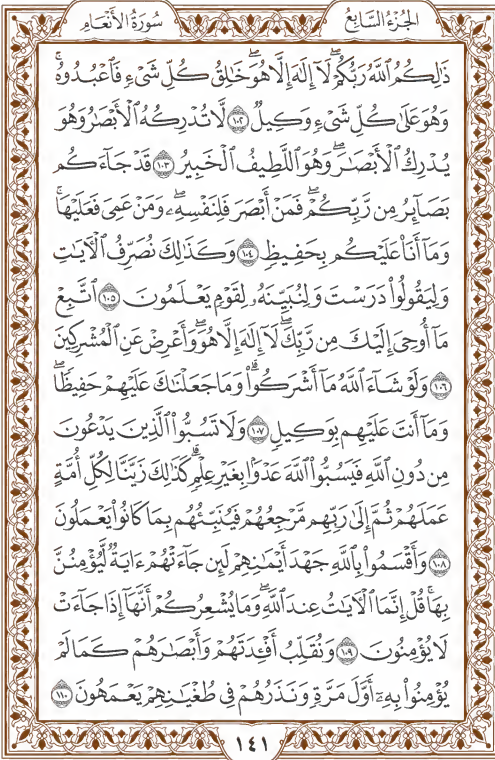 سُورَةُ الأَنْعَام
الجُزْءُ السَّابِعُ
ذَٰلِكُمُ ٱللَّهُ رَبُّكُمْۖ لَآ إِلَٰهَ إِلَّا هُوَۖ خَٰلِقُ كُلِّ شَىْءٍ فَٱعْبُدُوهُۚ
وَهُوَ عَلَىٰ كُلِّ شَىْءٍ وَكِيلٌ ١٠٢ لَّا تُدْرِكُهُ ٱلْأَبْصَٰرُ وَهُوَ
يُدْرِكُ ٱلْأَبْصَٰرَۖ وَهُوَ ٱللَّطِيفُ ٱلْخَبِيرُ ١٠٣ قَدْ جَآءَكُم
بَصَآئِرُ مِن رَّبِّكُمْۖ فَمَنْ أَبْصَرَ فَلِنَفْسِهِۦۖ وَمَنْ عَمِىَ فَعَلَيْهَاۚ
وَمَآ أَنَا۠ عَلَيْكُم بِحَفِيظٍ ١٠٤ وَكَذَٰلِكَ نُصَرِّفُ ٱلْءَايَٰتِ
وَلِيَقُولُوا۟ دَرَسْتَ وَلِنُبَيِّنَهُۥ لِقَوْمٍ يَعْلَمُونَ ١٠٥ ٱتَّبِعْ
مَآ أُوحِىَ إِلَيْكَ مِن رَّبِّكَۖ لَآ إِلَٰهَ إِلَّا هُوَۖ وَأَعْرِضْ عَنِ ٱلْمُشْرِكِينَ
١٠٦ وَلَوْ شَآءَ ٱللَّهُ مَآ أَشْرَكُوا۟ۗ وَمَا جَعَلْنَٰكَ عَلَيْهِمْ حَفِيظًاۖ
وَمَآ أَنتَ عَلَيْهِم بِوَكِيلٍ ١٠٧ وَلَا تَسُبُّوا۟ ٱلَّذِينَ يَدْعُونَ
مِن دُونِ ٱللَّهِ فَيَسُبُّوا۟ ٱللَّهَ عَدْوًۢا بِغَيْرِ عِلْمٍۗ كَذَٰلِكَ زَيَّنَّا لِكُلِّ أُمَّةٍ
عَمَلَهُمْ ثُمَّ إِلَىٰ رَبِّهِم مَّرْجِعُهُمْ فَيُنَبِّئُهُم بِمَا كَانُوا۟ يَعْمَلُونَ
١٠٨ وَأَقْسَمُوا۟ بِٱللَّهِ جَهْدَ أَيْمَٰنِهِمْ لَئِن جَآءَتْهُمْ ءَايَةٌ لَّيُؤْمِنُنَّ
بِهَاۚ قُلْ إِنَّمَا ٱلْءَايَٰتُ عِندَ ٱللَّهِۖ وَمَا يُشْعِرُكُمْ أَنَّهَآ إِذَا جَآءَتْ
لَا يُؤْمِنُونَ ١٠٩ وَنُقَلِّبُ أَفْـِٔدَتَهُمْ وَأَبْصَٰرَهُمْ كَمَا لَمْ
يُؤْمِنُوا۟ بِهِۦٓ أَوَّلَ مَرَّةٍ وَنَذَرُهُمْ فِى طُغْيَٰنِهِمْ يَعْمَهُونَ ١١٠
١٤١